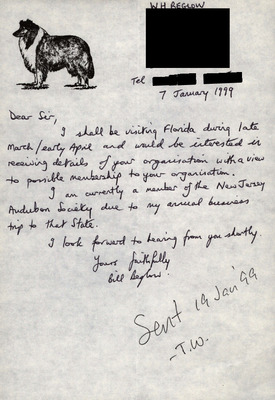 W H REGLOW
Tel
7 January 1999
Dear Sir,
I shall be visiting Florida during late
March/early April and would be interested in
receiving details of your organisation with a view
to possible membership to your organisation.
I am currently a member of the New Jersey
Audubon Society due to my annual business
trip to that State.
I look forward to hearing from you shortly.
Yours faithfully
Bill Reglow.
Sent 19 Jan '99
- T.W.